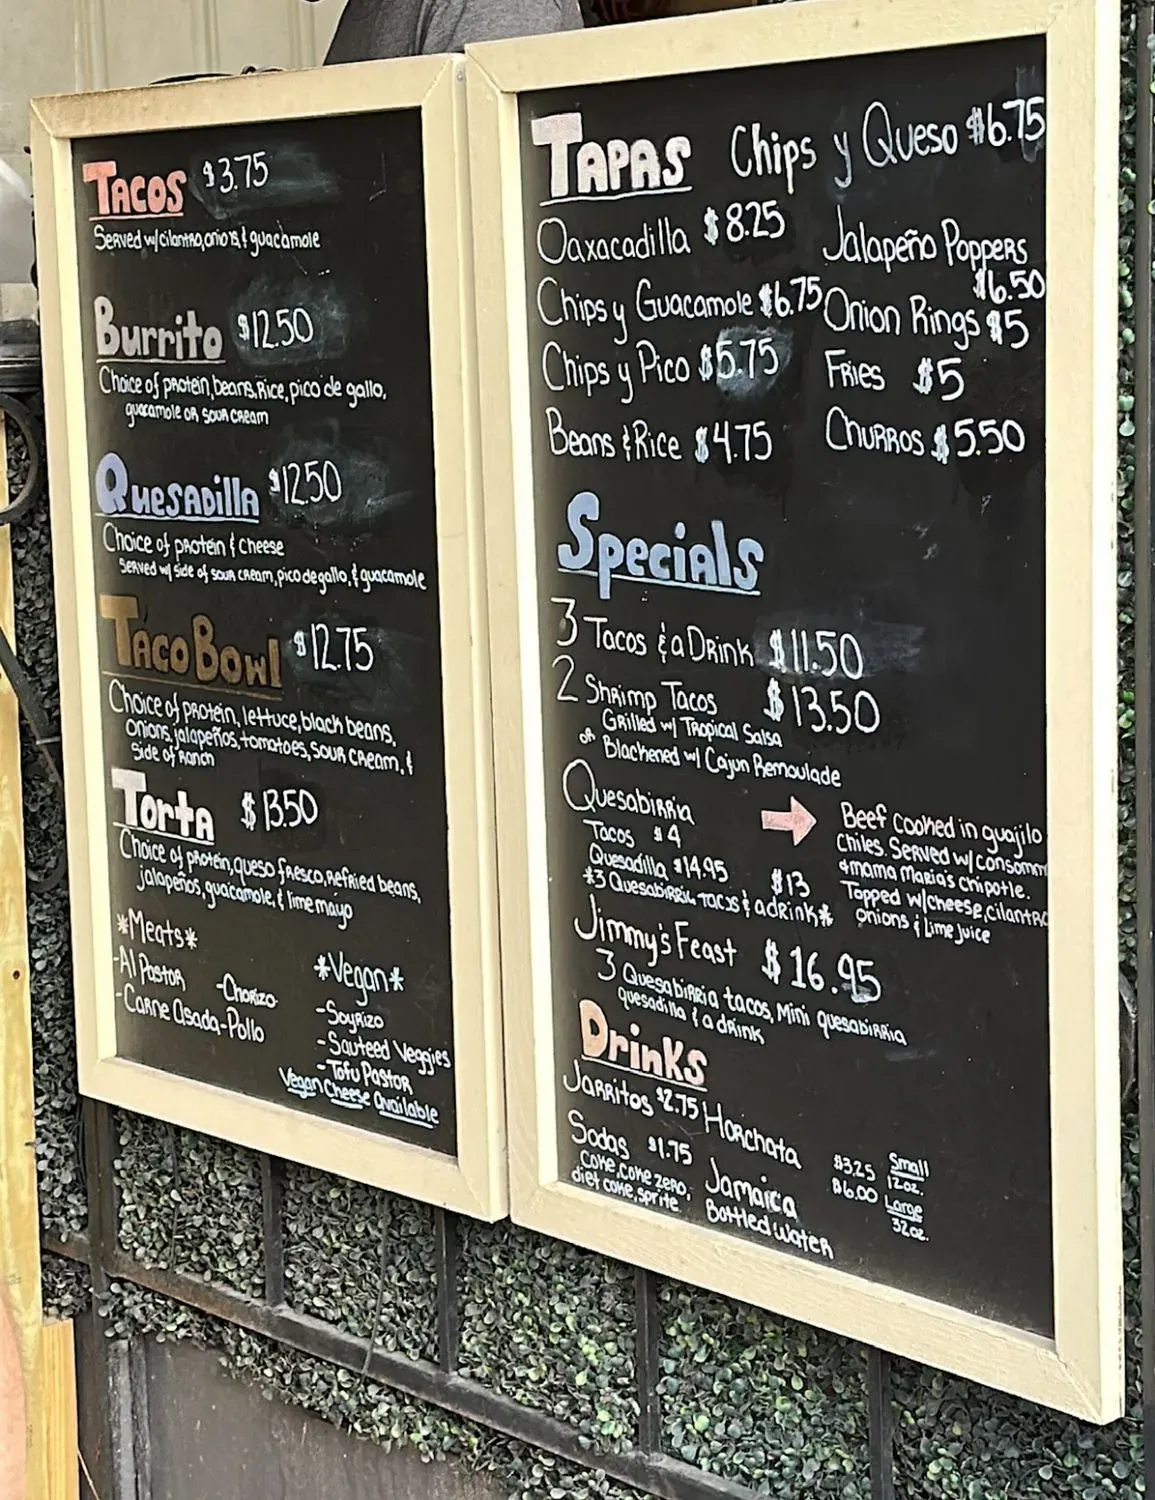 Tacos $3.75
Served w/cilantro, onions, & guacamole
Burrito $12.50
Choice of protein, beans, Rice, pico de gallo,
guacamole or sour cream
Quesadilla $12.50
Choice of protein & cheese
Served w/ side of sour cream, pico de gallo, & guacamole
Taco Bowl $12.75
Choice of protein, lettuce, black beans,
onions, jalapeños, tomatoes, sour cream, &
side of Ranch
Torta $13.50
Choice of protein, queso fresco, refried beans,
jalapeños, guacamole, & lime mayo
*Meats*
-Al Pastor -Chorizo
-Carne Asada -Pollo
*Vegan*
-Soyrizo
-Sauteed Veggies
-Tofu Pastor
Vegan Cheese Available
Tapas Chips y Queso $6.75
Oaxacadilla $8.25
Chips y Guacamole $6.75
Chips y Pico $5.75
Beans & Rice $4.75
Jalapeño Poppers
$6.50
Onion Rings $5
Fries $5
Churros $5.50
Specials
3 Tacos & a Drink $11.50
2 Shrimp Tacos $13.50
Grilled w/ Tropical Salsa
or Blackened w/ Cajun Remoulade
Quesabirria
Tacos $4
Quesadilla $14.95
*3 Quesabirria tacos & a drink* $13
Beef cooked in guajilo
chiles. Served w/ consomm
& mama Maria's chipotle.
Topped w/cheese, cilantro
onions & lime juice
Jimmy's Feast $16.95
3 Quesabirria tacos, Mini quesabirria
quesadilla & a drink
Drinks
Jarritos $2.75
Sodas $1.75
Coke, coke zero,
diet coke, sprite.
Horchata
Jamaica
Bottled Water
$3.25 Small
12oz.
$6.00 Large
32oz.